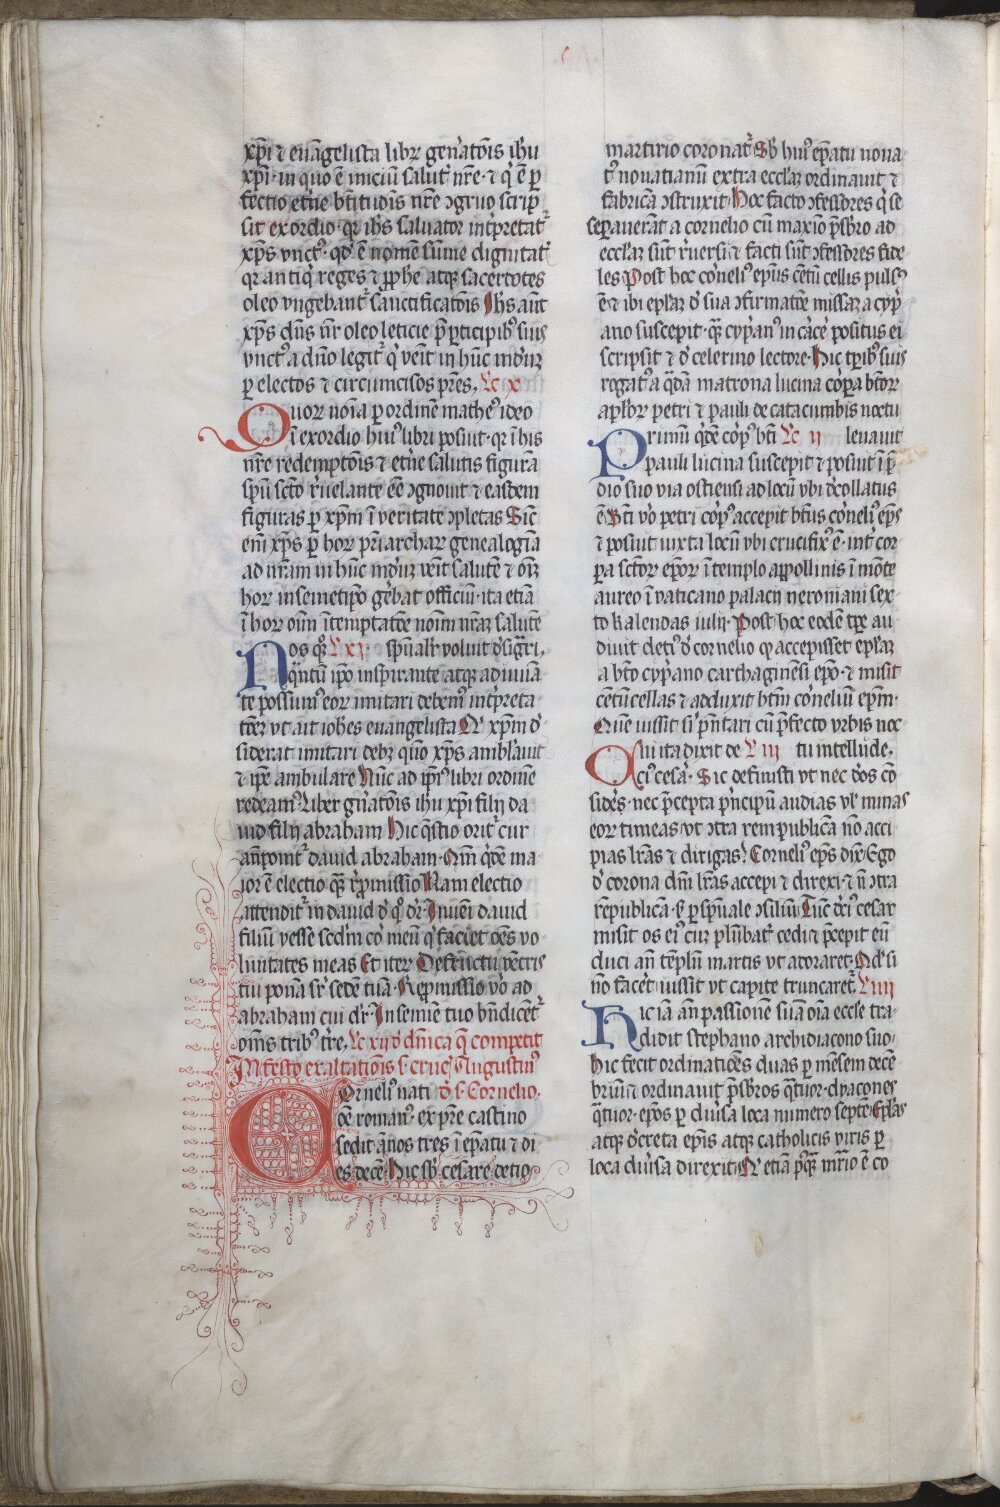 xp̄i ⁊ euāgelista libꝝ gen̄atōis ih̄u
xp̄i· in quo ē iniciū salut̄ nr̄e· ⁊ q̇ ē ꝑ
fectio et̄ne bt̄itudīs nr̄e ꝯgruo scrip
sit exordio· qꝛ ih̄s saluator int̄pretat̄
xp̄s vnctꝰ· qđ ē nomē sūme dignitat̄
qꝛ antiq̇ reges ⁊ ꝓph̄e atqꝫ sacerdotes
oleo vngebant̄ sanctificatōis Ih̄s aūt
xp̄s dn̄s nr̄ oleo leticie p̄ ꝑticipibꝰ suis
vnctꝰ a dn̄o legit̄ q̇ veīt in hūc mūduꝫ
ꝑ electos ⁊ circumcisos pr̄es, Lc̄ x
Quoꝝ noīa ꝑ ordinē matheꝰ ideo
ī exordio huiꝰ libri posuit· qꝛ ī his
nr̄e redemptōis ⁊ et̄ne salutis figurā
spū sc̄to r̄uelante eē ꝯgnouit ⁊ easdem
figuras ꝑ xp̄m ī veritate ꝯpletas Sic̄
eni xp̄s ꝑ hoꝝ pr̄iarchaꝝ genealogiā
ad nr̄am in hūc mūduꝫ veīt salutē ⁊ om̄
hoꝝ in semetip̄o gēbat officiū· ita etiā
ī hoꝝ oīm ītemptatōe noīm nr̄aꝫ salutē
Nos qꝫ Lc̄ xi· spūalr̄ voluit d̄sig̃ri,
q̄ntū ip̄o inspirante atqꝫ adiuuā
te possumꝰ eoꝝ imitari debemꝰ int̄preta
tōeꝫ vt ait ioh̄es euangelista Qͥ xp̄m d̄
siderat imitari debꝫ quō xp̄s amb̄lauit
⁊ ip̄e ambulare Nūc ad ip̄iꝰ libri ordinē
redeamꝰ Liber gn̄atōis ih̄u xp̄i filij da
uid filij abraham Hic q̄stio orit̄ cur
an̄ponit̄ dauid abraham· Qm̄ q̇dē ma
ior ē electio q̄ꝫ r̄ꝓmissio Nam electio
attendit̄ in dauid d̄ qͦ dr̄ Inueni dauid
filiū yesse scdm coꝛ meū q̇ faciet oēs vo
luntates meas Et iteꝝ De fructu ventris
tui ponā sr̄ sedē tuā· Reꝓmissio v̄o ad
abraham cui dr̄ In semīe tuo bn̄dicēt̄
om̄s tribꝰ tr̄e, Lc̄ xij d̄ dn̄ica q̄ competit
In festo exaltatiōis s̄ crucꝭ Augustinꝰ
Corneliꝰ nati d̄ s̄ Cornelio·
oē romanꝰ· ex pr̄e castino
sedit an̄os tres ī ep̄atu ⁊ di
es decē Hic sb̄ cesare decio
martirio coronat̄ Sb̄ huiꝰ ep̄atu noua
tꝰ nouatianū extra eccl̄aꝫ ordinauit ⁊
fabricā ꝯstruxit Hoc facto ꝯfessores q̇ se
sepauerāt a cornelio cū maxiō p̄sb̄ro ad
eccl̄aꝫ sūt r̄uersi ⁊ facti sūt ꝯfessores fide
les Post hoc co̅neliꝰ ep̄us cētū cellis pulsꝰ
ē ⁊ ibi ep̄laꝫ d̄ sua ꝯfirmatōe missaꝫ a cyp̄
ano suscepit· q̄ꝫ cyp̄anꝰ in cāce positus ei
scripsit ⁊ d̄ celerino lectore· Hic tꝑibꝰ suis
rogatꝰ a q̄dā matrona lucina coꝛꝑa bt̄oꝝ
ap̄loꝝ petri ⁊ pauli de catacumbis noctu
Primū q̇dē coꝛpꝰ bt̄i Lc̄ ij leuauit
pauli lucina suscepit ⁊ posuit ī p̄
dio suo via ostiensi ad locū vbi d̄collatus
ē Bt̄i v̄o petri coꝛpꝰ accepit bt̄us co̅neliꝰ ep̄s
⁊ posuit iuxta locū vbi crucifixꝰ ē· int̄ coꝛ
ꝑa sc̄toꝝ ep̄oꝝ ī templo appollinis ī mōte
aureo ī vaticano palacij neroniani sex
to kalendas iulij· Post hoc eodē tꝑe au
diuit deciꝰ d̄ cornelio qꝫ accepisset ep̄laꝫ
a bt̄o cyp̄ano carthaginēsi ep̄o· ⁊ misit
cētū cellas ⁊ adduxit bt̄m co̅neliū ep̄m·
Quē iussit s̄i p̄ntari cū p̄fecto vrbis noc
Qui ita dixit de Lc̄ iii tu intellude,
ciꝰ cesā· Sic definisti vt nec d̄os cō
sid̄es· nec p̄cepta p̄ncipū audias vl̄ minas
eoꝝ timeas vt ꝯtra rem publicā nō acci
pias lr̄as ⁊ dirigas? Corneliꝰ ep̄s dix̄· Ego
d̄ corona dn̄i lr̄as accepi ⁊ direxi ⁊ n̄ ꝯtra
rēpublicā· s̄ ꝑ spūale ꝯsiliū Tūc deciꝰ cesar
misit os eiꝰ cuꝫ plūbat̄ cedi ⁊ p̄cepit eū
duci an̄ tēplū martis vt adoraret· Qd̄ si
nō facēt iussit vt capite truncaret̄ Liiij
Hic iā an̄ passionē suā oīa eccl̄e tra
didit stephano archidiacono suo·
hic fecit ordinatōes duas ꝑ mēsem decē
briū ⁊ ordinauit p̄sb̄ros q̄tuor· dyacones
q̄tuor· ep̄os ꝑ diūsa loca numero septē Ep̄las
atqꝫ d̄creta ep̄is atqꝫ catholicis viris ꝑ
loca diūsa direxit Qͥ etiā pꝰqꝫ mr̄rio ē co